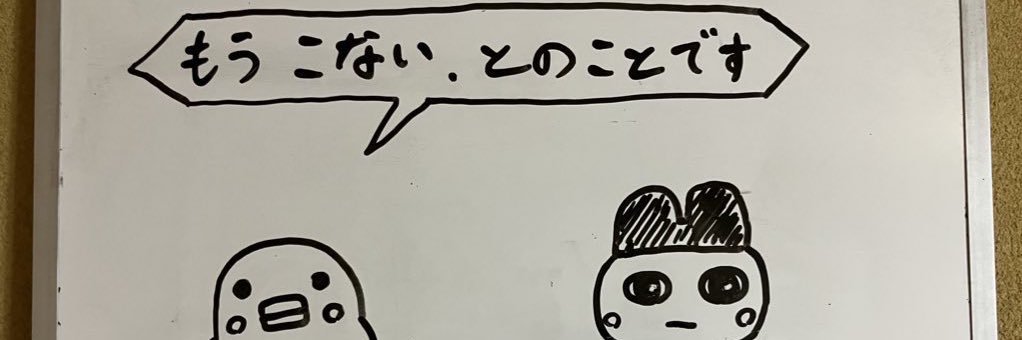 もうこない.とのことです